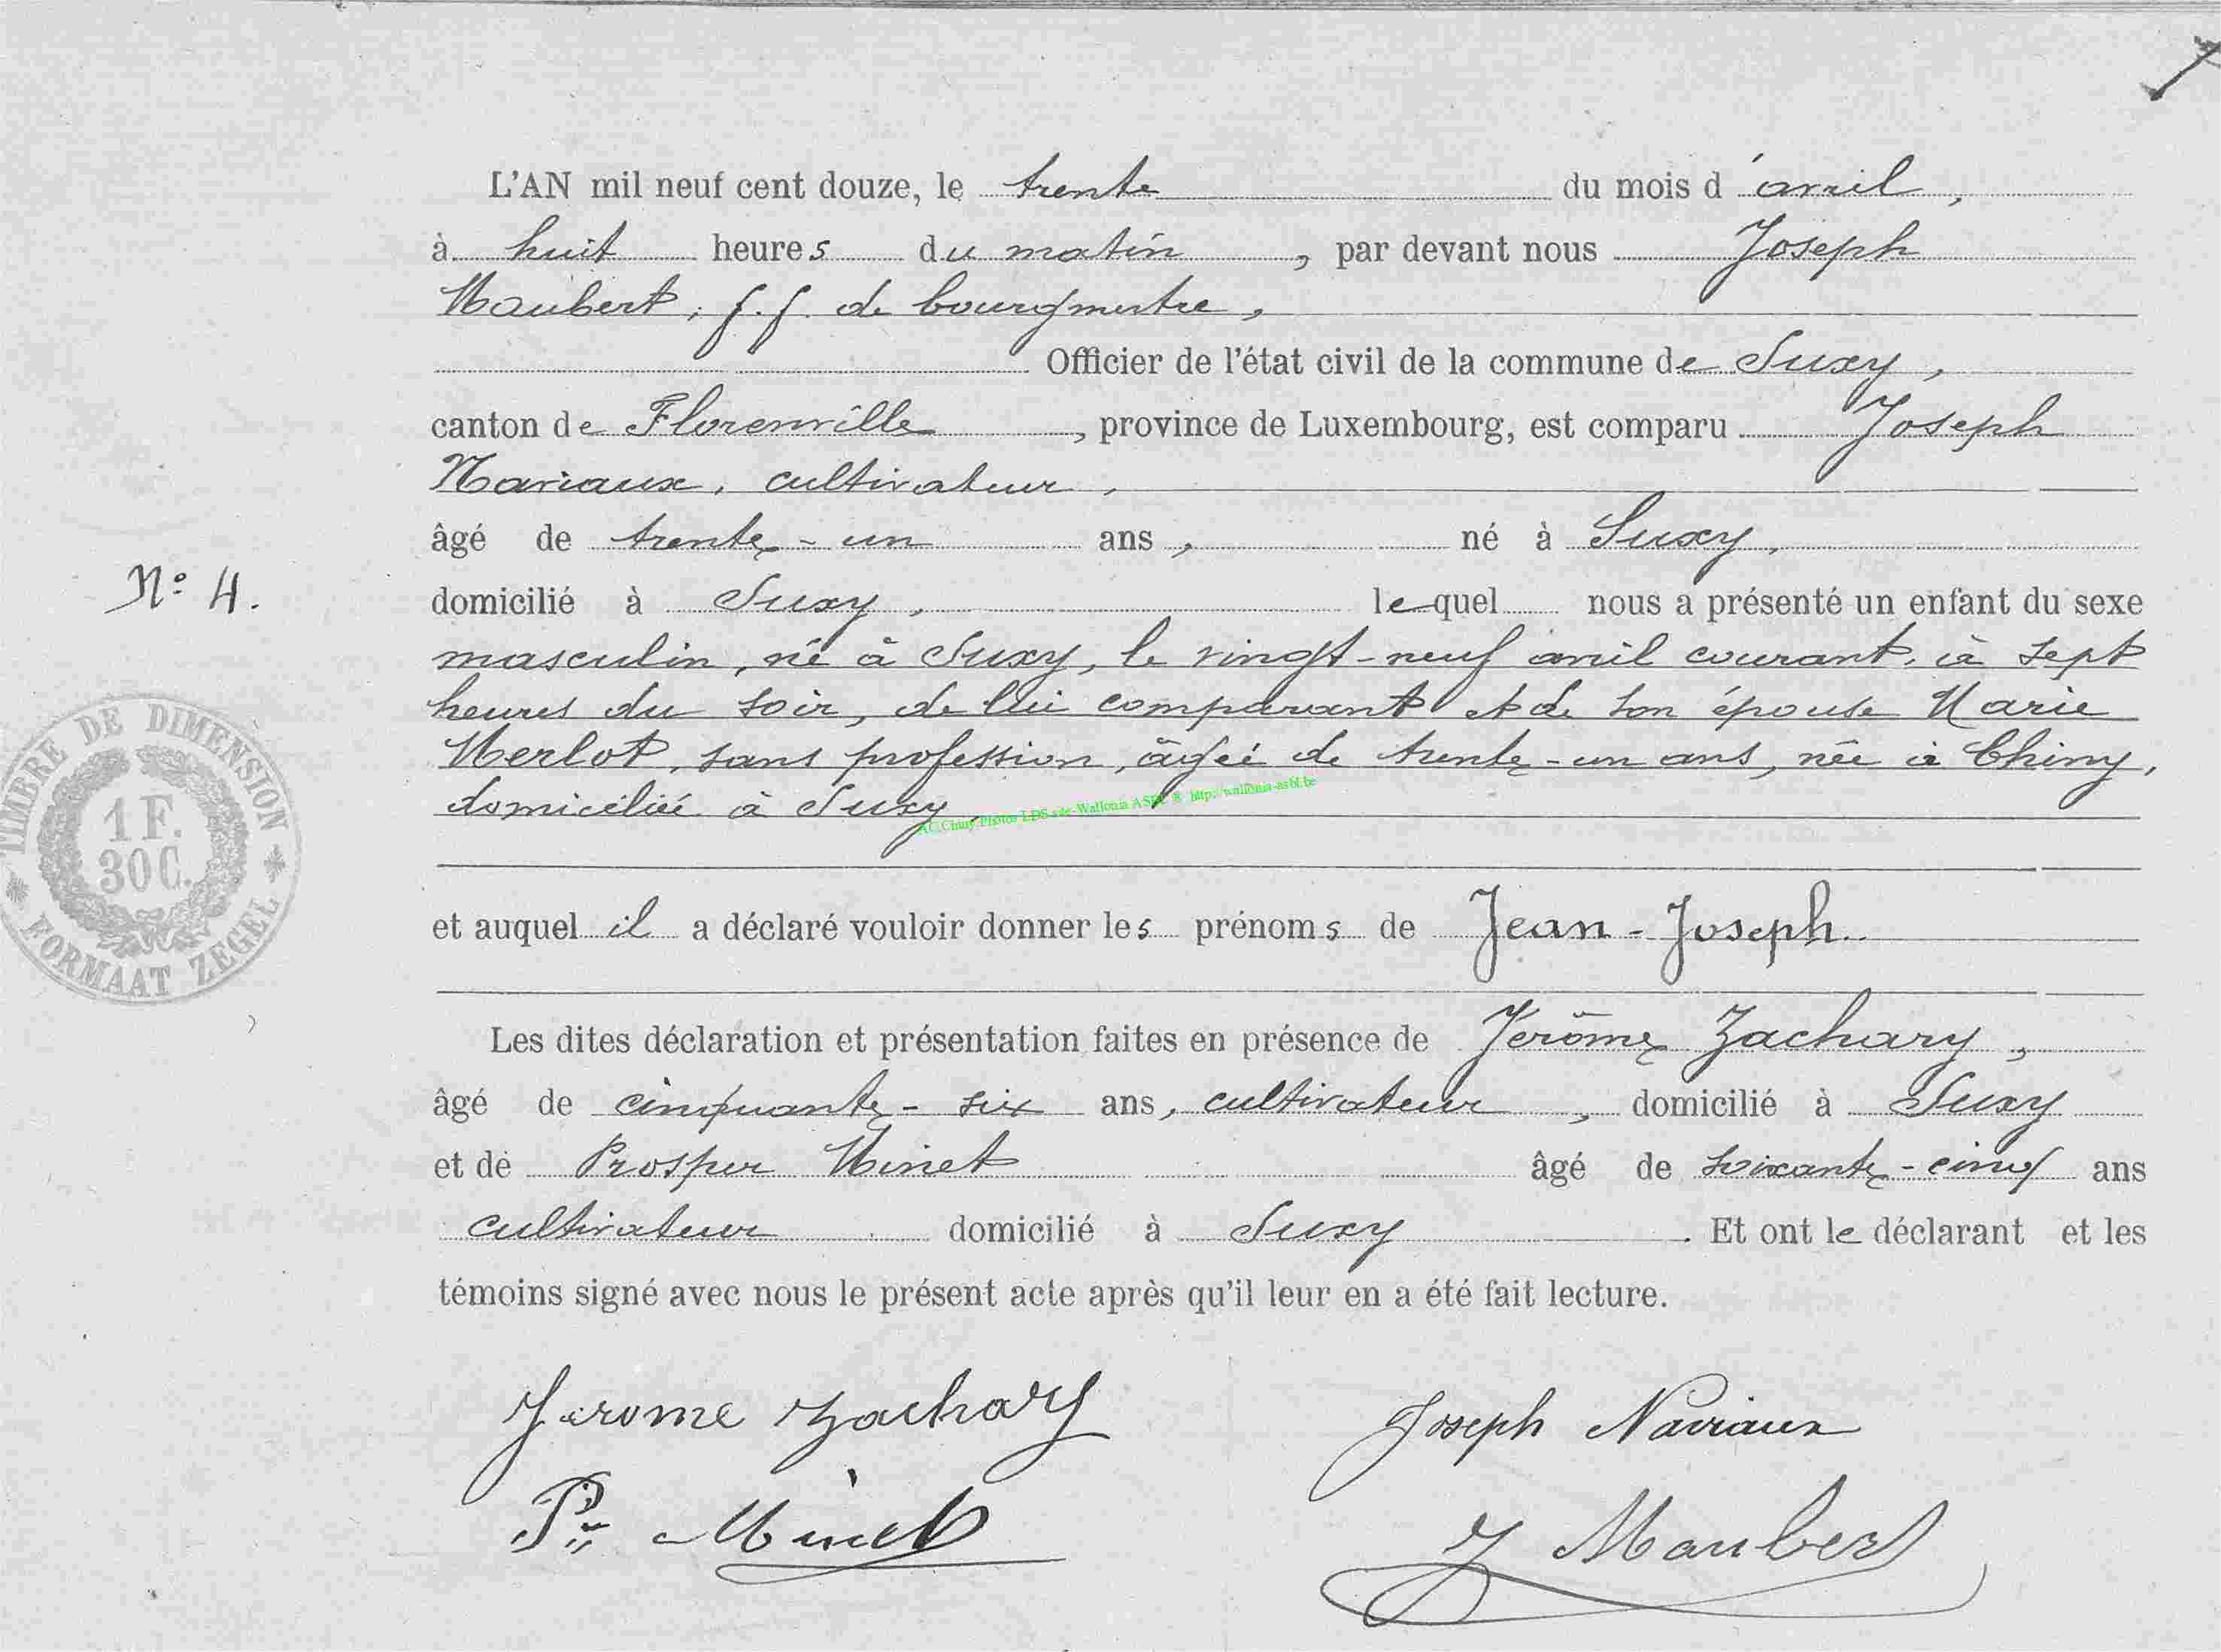 L'AN mil neuf cent douze, le trente du mois d'avril,
à huit heures du matin, par devant nous Joseph
Maubert, f.f. de bourgmestre,
Officier de l'état civil de la commune de Suxy,
canton de Florenville, province de Luxembourg, est comparu Joseph
Naviaux, cultivateur,
âgé de trente-un ans, né à Suxy,
N° 4.
domicilié à Suxy, lequel nous a présenté un enfant du sexe
masculin, né à Suxy, le vingt-neuf avril courant, à sept
heures du soir, de lui comparant et de son épouse Marie
Merlot, sans profession, âgée de trente-un ans, née à Chiny,
domiciliée à Suxy.
TIMBRE DE DIMENSION
1 F.
30 C.
FORMAAT ZEGEL
et auquel il a déclaré vouloir donner les prénoms de Jean-Joseph.
Les dites déclaration et présentation faites en présence de Jérôme Zachary,
âgé de cinquante-six ans, cultivateur, domicilié à Suxy
et de Prosper Minet âgé de soixante-cinq ans
cultivateur domicilié à Suxy. Et ont le déclarant et les
témoins signé avec nous le présent acte après qu'il leur en a été fait lecture.
Jerome Zachary
Joseph Naviaux
Pr Minet
J Maubert